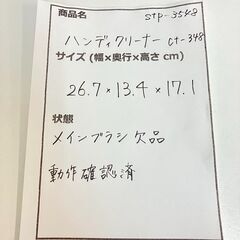 商品名
stp-3548
ハンディクリーナー ct-348
サイズ (幅×奥行×高さ cm)
26.7×13.4×17.1
状態
メインブラシ欠品
動作確認済